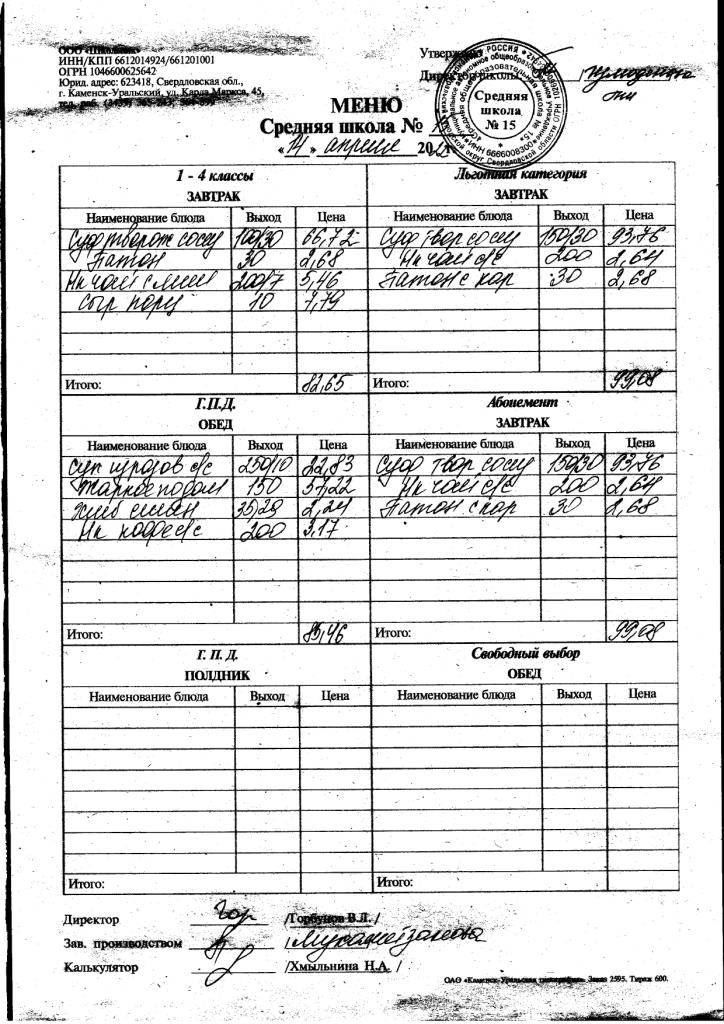 ООО «Школьник»
ИНН/КПП 6612014924/661201001
ОГРН 1046600625642
Юрид. адрес: 623418, Свердловская обл.,
г. Каменск-Уральский, ул. Карла Маркса, 45,
тел. раб. (3439)
Утверждаю
Директор школы
Средняя школа № 15
МЕНЮ
Средняя школа № 15
«14» апреля 2022 г.
1 - 4 классы
ЗАВТРАК
Наименование блюда Выход Цена
Суф творож со сгу 100/30 66,72
Батон 30 2,68
Нк чай с лим 200/7 5,46
Сыр порц 10 7,79
Итого: 82,65
Льготная категория
ЗАВТРАК
Наименование блюда Выход Цена
Суф твор со сгу 150/30 93,76
Нк чай с/с 200 2,64
Батон с кор 30 2,68
Итого: 99,08
Г.П.Д.
ОБЕД
Наименование блюда Выход Цена
Суп с/с 250/10 22,83
Жаркое по дом 150 57,22
Хлеб 2,24
Нк кофе с/с 200 3,17
Итого: 85,46
Абонемент
ЗАВТРАК
Наименование блюда Выход Цена
Суф твор со сгу 150/30 93,76
Нк чай с/с 200 2,64
Батон с кор 30 2,68
Итого: 99,08
Г. П. Д.
ПОЛДНИК
Наименование блюда Выход Цена
Итого:
Свободный выбор
ОБЕД
Наименование блюда Выход Цена
Итого:
Директор /Горбунов В.Л. /
Зав. производством / Мухаметзянова
Калькулятор /Хмыльнина Н.А. /
ОАО «Каменск-Уральская типография». Заказ 2595. Тираж 600.